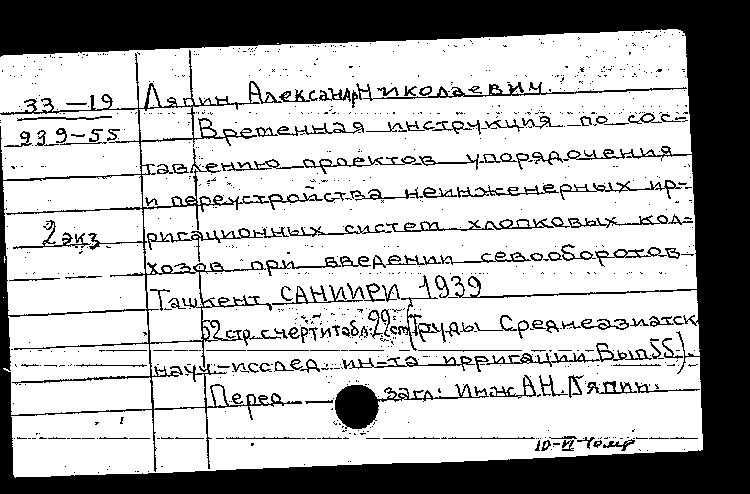 33-19 Ляпин, Александр Николаевич.
939-55 Временная инструкция по сос-
тавлению проектов упорядочения
и переустройства неинженерных ир-
2 экз ригационных систем хлопковых кол-
хозов при введении севооборотов
Ташкент, САНИИРИ, 1939
52 стр. с черт и табл. 22 см (Труды Среднеазиатск
науч-исслед. ин-та ирригации Вып 55).
Перед загл: Инж А.Н. Ляпин.
10-VI-40